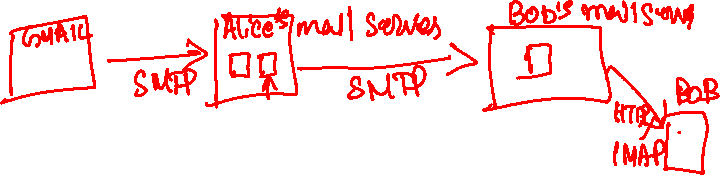 GMAIL
SMTP
Alice's mail server
SMTP
BOB's mail serve
HTTP/
IMAP
BOB